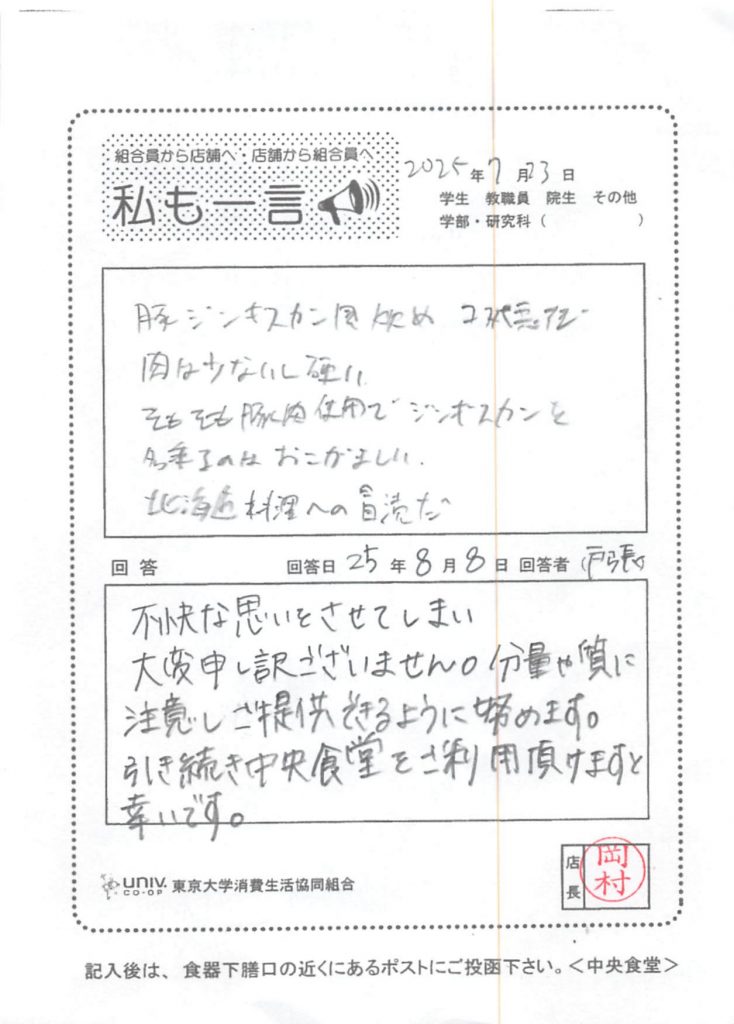 組合員から店舗へ・店舗から組合員へ
私も一言
2025年7月23日
学生 教職員 院生 その他
学部・研究科( )
豚ジンギスカン風炒め
肉は少ないし硬い
そもそも豚肉使用でジンギスカンを
名乗るのはおこがましい.
北海道料理への冒涜だ
回答 回答日 25年8月8日 回答者 戸張
不快な思いをさせてしまい
大変申し訳ございません。分量や質に
注意しご提供できるように努めます。
引き続き中央食堂をご利用頂けますと
幸いです。
UNIV. CO-OP 東京大学消費生活協同組合
店長 岡村
記入後は、食器下膳口の近くにあるポストにご投函下さい。<中央食堂>